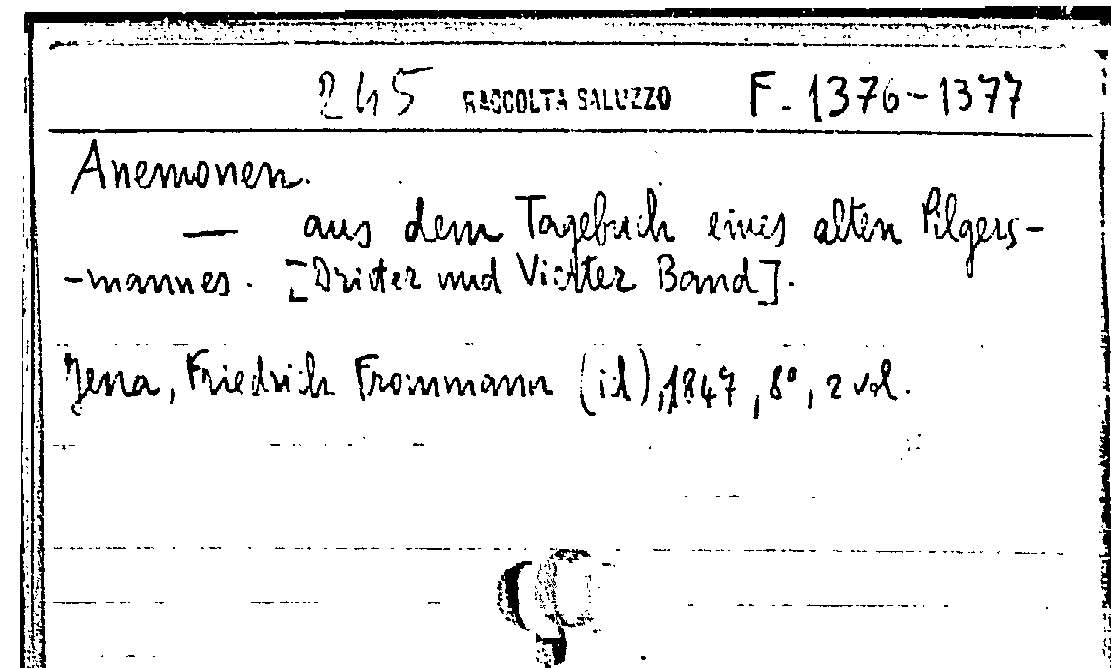 245 RACCOLTA SALUZZO F. 1376-1377
Anemonen.
— aus dem Tagebuch eines alten Pilgers-
-mannes. [Dritter und Vierter Band].
Jena, Friedrich Frommann (id), 1847, 8°, 2 vol.